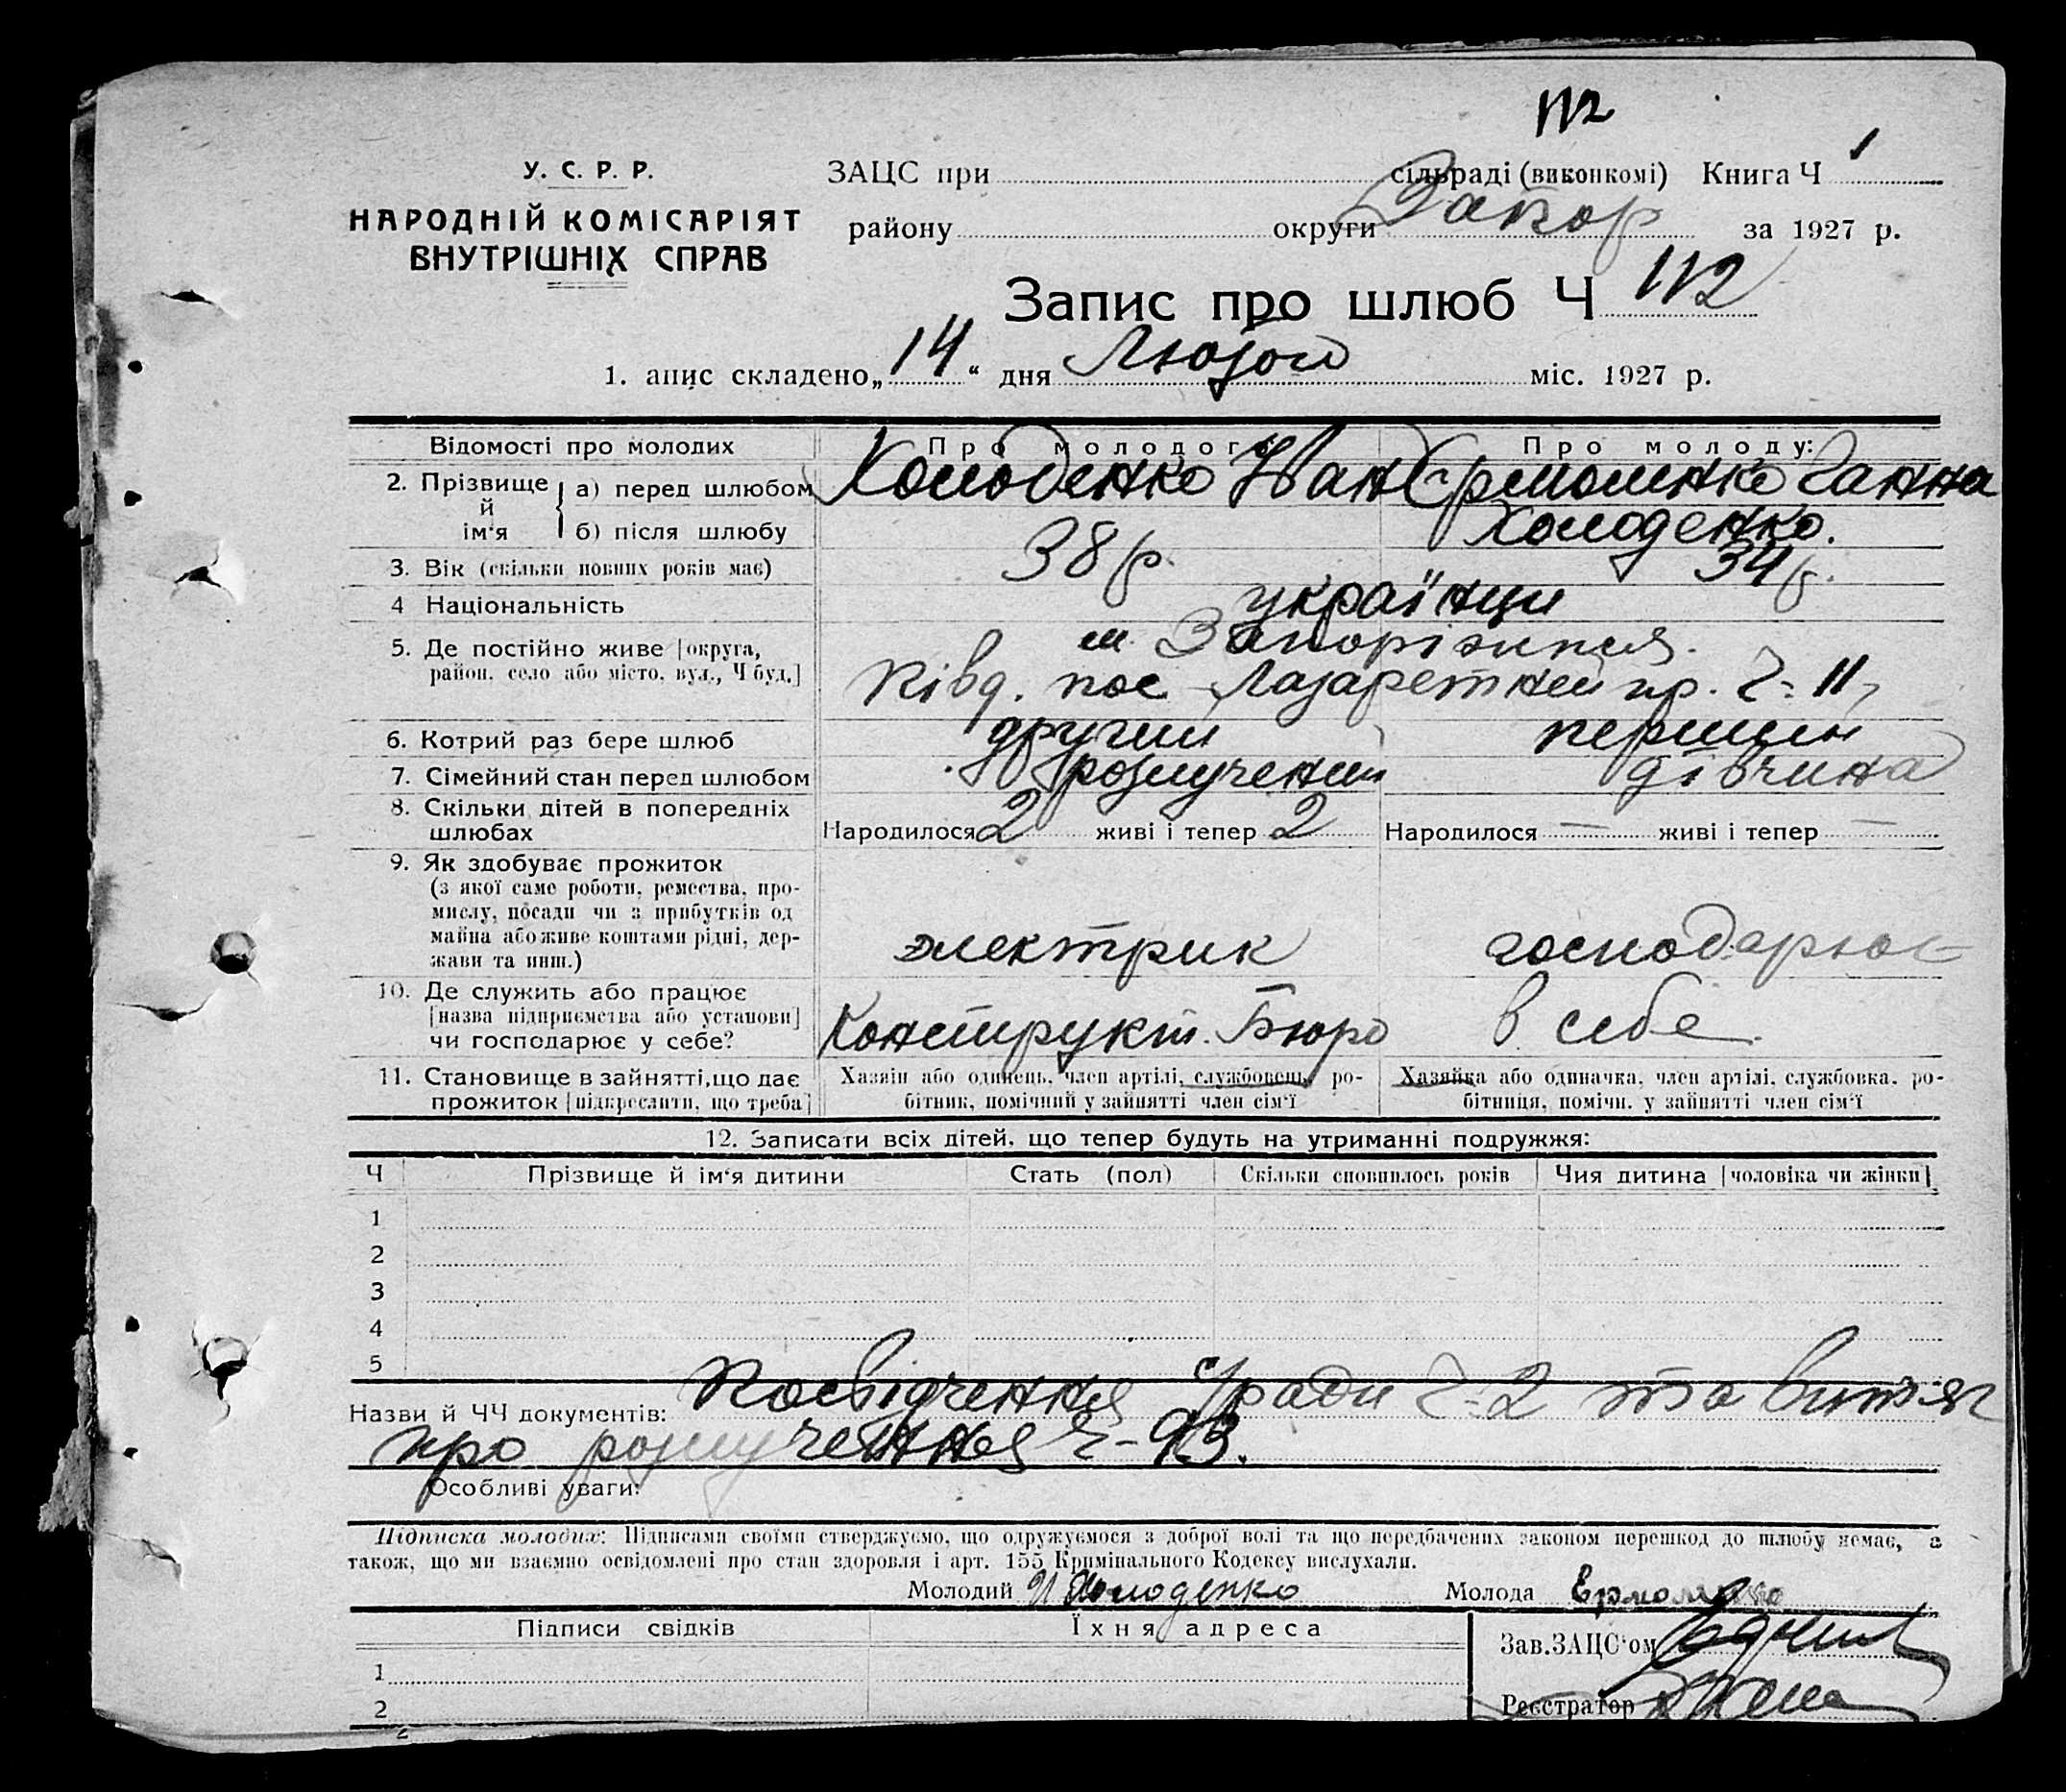 112
У. С. Р. Р.
НАРОДНІЙ КОМІСАРІЯТ
ВНУТРІШНІХ СПРАВ
ЗАЦС при сільраді (виконкомі) Книга Ч 1
району округи Запор за 1927 р.
Запис про шлюб Ч 112
1. апис складено „14“ дня Лютого міс. 1927 р.
Відомості про молодих Про молодого Про молоду:
2. Прізвище й ім'я а) перед шлюбом Холоденко Іван Єрмоленко Ганна
б) після шлюбу Холоденко.
3. Вік (скільки повних років має) 38 р. 34 р.
4 Національність українци
5. Де постійно живе [округа, район, село або місто, вул., Ч буд.] м. Запоріжжя.
Півд. пос Лазаретний пр. Ч-11,
6. Котрий раз бере шлюб другий перший
7. Сімейний стан перед шлюбом розлучений дівчина
8. Скільки дітей в попередніх шлюбах Народилося 2 живі і тепер 2 Народилося — живі і тепер —
9. Як здобуває прожиток
(з якої саме роботи, ремества, про-
мислу, посади чи з прибутків од
майна або живе коштами рідні, дер-
жави та инш.) электрик господарює
10. Де служить або працює
[назва підприємства або установи]
чи господарює у себе? Конструкт. Бюро в себе.
11. Становище в зайнятті, що дає
прожиток [підкреслити, що треба]
Хазяїн або одинець, член артілі, службовець, ро-
бітник, помічний у зайнятті член сім'ї
Хазяйка або одиначка, член артілі, службовка, ро-
бітниця, помічн. у зайнятті член сім'ї
12. Записати всіх дітей, що тепер будуть на утриманні подружжя:
Ч Прізвище й ім'я дитини Стать (пол) Скільки сповнилось років Чия дитина [чоловіка чи жінки]
1
2
3
4
5
Назви й ЧЧ документів: Посвідчення С/ради Ч-2 та витяг
про розлучення Ч-93.
Особливі уваги:
Підписка молодих: Підписами своїми стверджуємо, що одружуємося з доброї волі та що передбачених законом перешкод до шлюбу немає, а
також, що ми взаємно освідомлені про стан здоровля і арт. 155 Кримінального Кодексу вислухали.
Молодий И Холоденко Молода Ермоленко
Підписи свідків Їхня адреса Зав. ЗАЦС'ом
1
2 Реєстратор